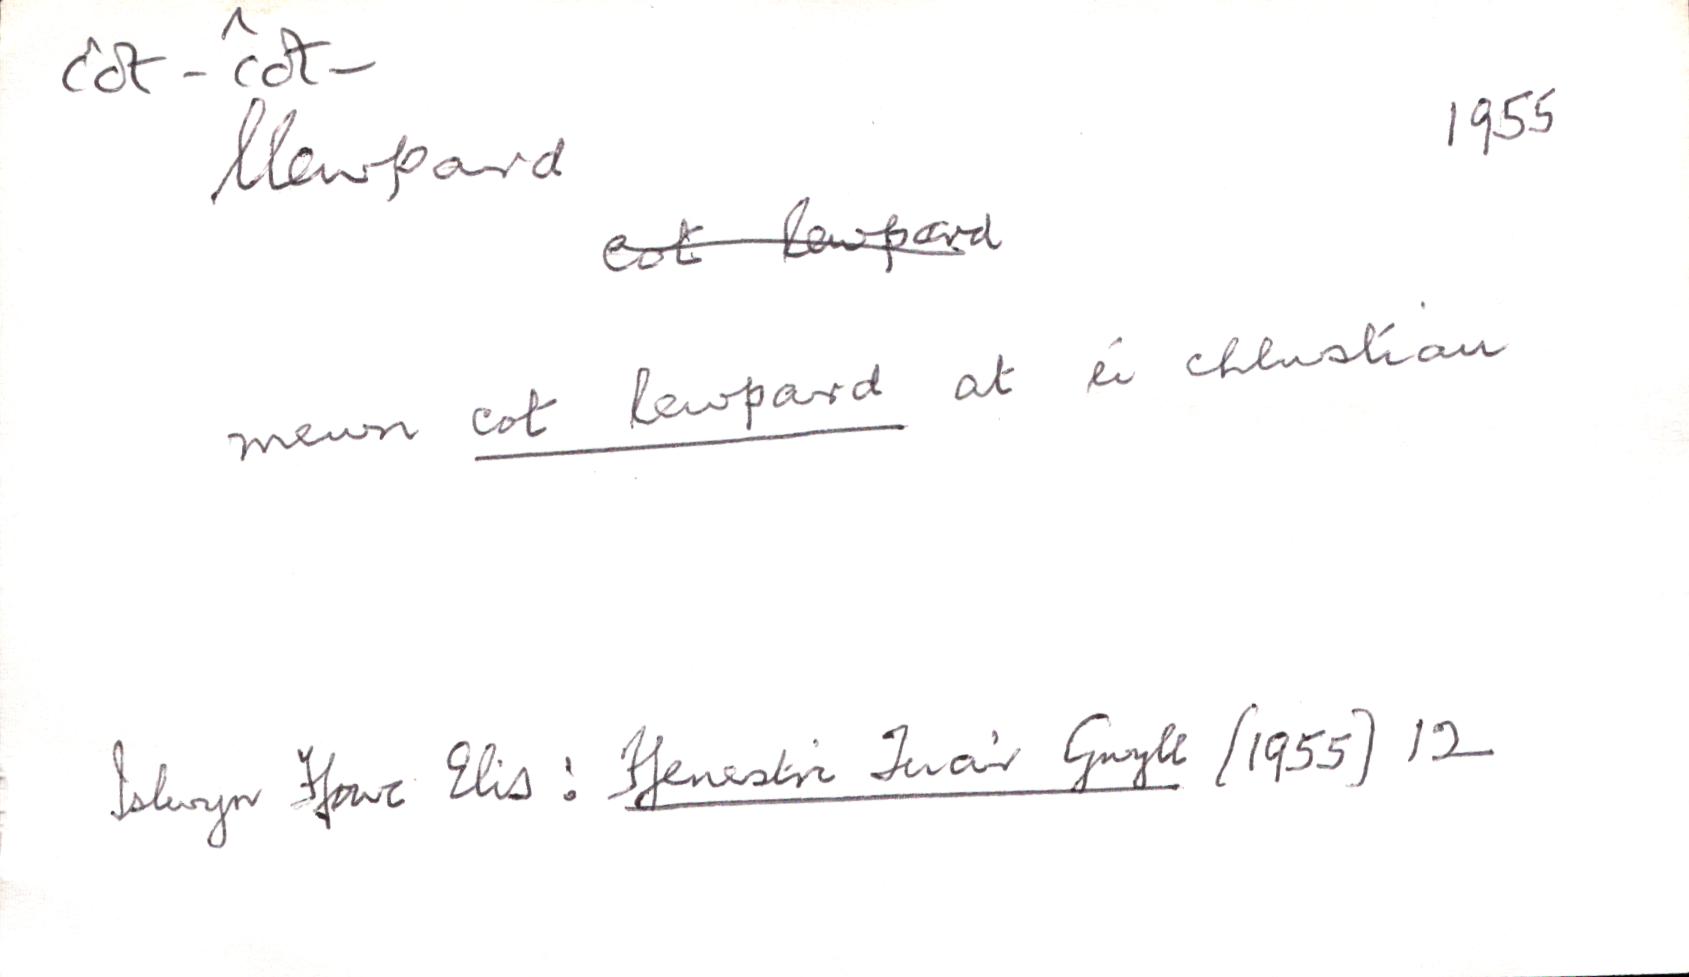 côt - côt -
llewpard
1955
cot lewpard
mewn cot lewpard at ei chlustiau
Islwyn Ffowc Elis: Ffenestri Tua'r Gwyll [1955] 12